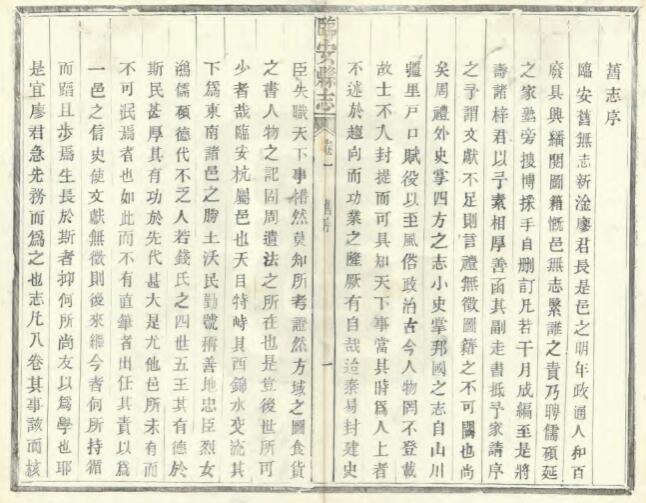 舊志序
臨安舊無志新淦廖君長是邑之明年政通人和百
廢具興繙閱圖籍慨邑無志繄誰之責乃聘儒碩延
之家塾旁搜博採手自刪訂凡若干月成編至是將
壽諸梓君以予素相厚善函其副走書抵予家請序
之予謂文獻不足則言禮無徵圖籍之不可闕也尚
矣周禮外史掌四方之志小史掌邦國之志自山川
疆里戸口賦役以至風俗政治古今人物罔不登載
故士不入封提而可具知天下事當其時爲人上者
不迷於趨向而功業之隆厥有自哉迨秦易封建史
臨安縣志
卷一
舊序
一
臣失職天下事惜然莫知所考證然方域之圖食貨
之書人物之記固周遺法之所在也是豈後世所可
少者哉臨安杭屬邑也天目特峙其西錦水交流其
下爲東南諸邑之勝土沃民勤號稱善地忠臣烈女
鴻儒碩德代不乏人若錢氏之四世五王其有德於
斯民甚厚其有功於先代甚大是尤他邑所未有而
不可泯焉者也如此而不有直筆者出任其責以爲
一邑之信史使文獻無徵則後來繼今者何所持循
而跬且步焉生長於斯者抑何所尚友以爲學也耶
是宜廖君急先務而爲之也志凡八卷其事該而核